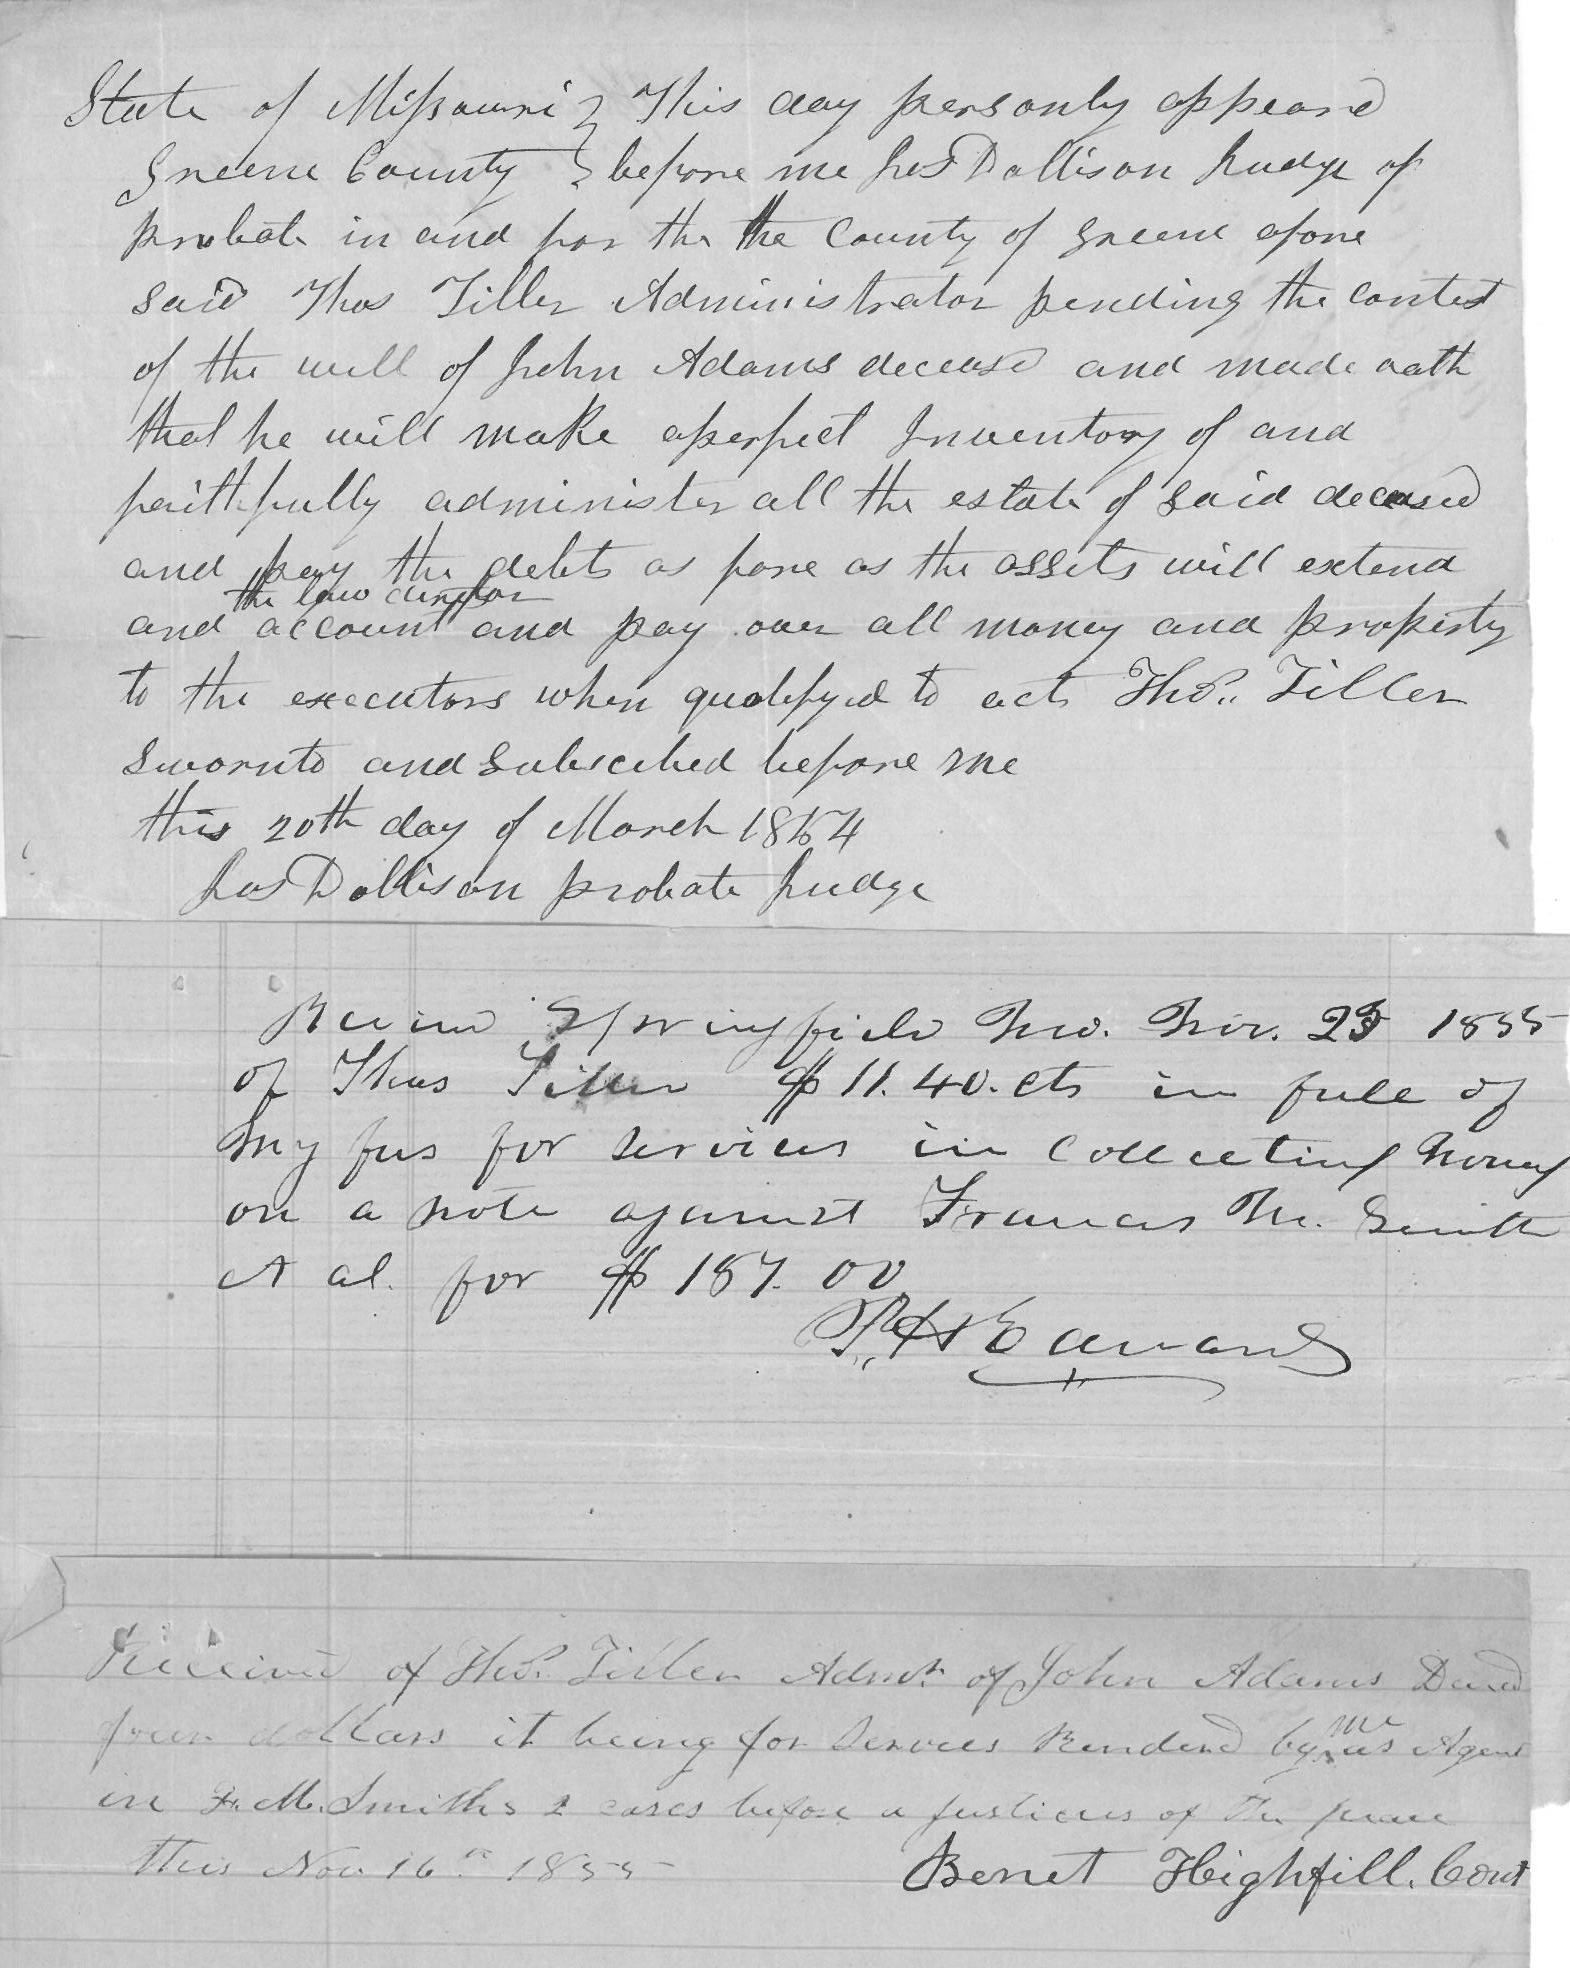 State of Missouri } This day personly appeard
Greene County } before me Jos Dollison Judge of
probate in and for the the County of Greene afore
said Thos Tiller Administrator pending the contest
of the will of John Adams deceasd and made oath
that he will make aperfect Inventory of and
faithfully administer all the estate of said deceased
and pay the debts as fare as the assets will extend
the law
and account and pay over all money and property
to the executors when qualifyed to act Thos. Tiller
Swornto and Subscribed before me
this 20th day of March 1854
Jos Dollison probate Judge
Received Springfield Mo. Nov. 23 1855
of Thos Tiller $11.40. cts in full of
my fees for services in Collecting money
on a note against Francis M. Smith
et al. for $187.00
Edwards
Received of Thos. Tiller Admr. of John Adams Decd
four dollars it being for Services Renderd by me as Agent
in F. M. Smiths 2 cases before a Justices of the peace
this Nov 16th 1855
Benet Highfill. Const